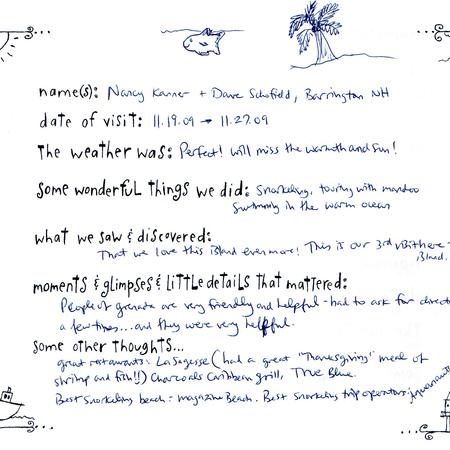 name(s): Nancy Kanner + Dave Schofield, Barrington NH
date of visit: 11.19.09 → 11.27.09
The weather was: Perfect! will miss the warmth and sun!
Some wonderful things we did: Snorkeling, touring with mandoo
Swimming in the warm ocean
what we saw & discovered:
That we love this island even more! This is our 3rd visit here -
island.
moments & glimpses & little details that mattered:
People of grenada are very friendly and helpful - had to ask for direct
a few times...and they were very helpful.
Some other thoughts...
great restaurants: La Sagesse (had a great "Thanksgiving" meal of
shrimp and fish!!) Charcoals Caribbean grill, True Blue.
Best snorkeling beach: magazine Beach. Best snorkeling trip operators: